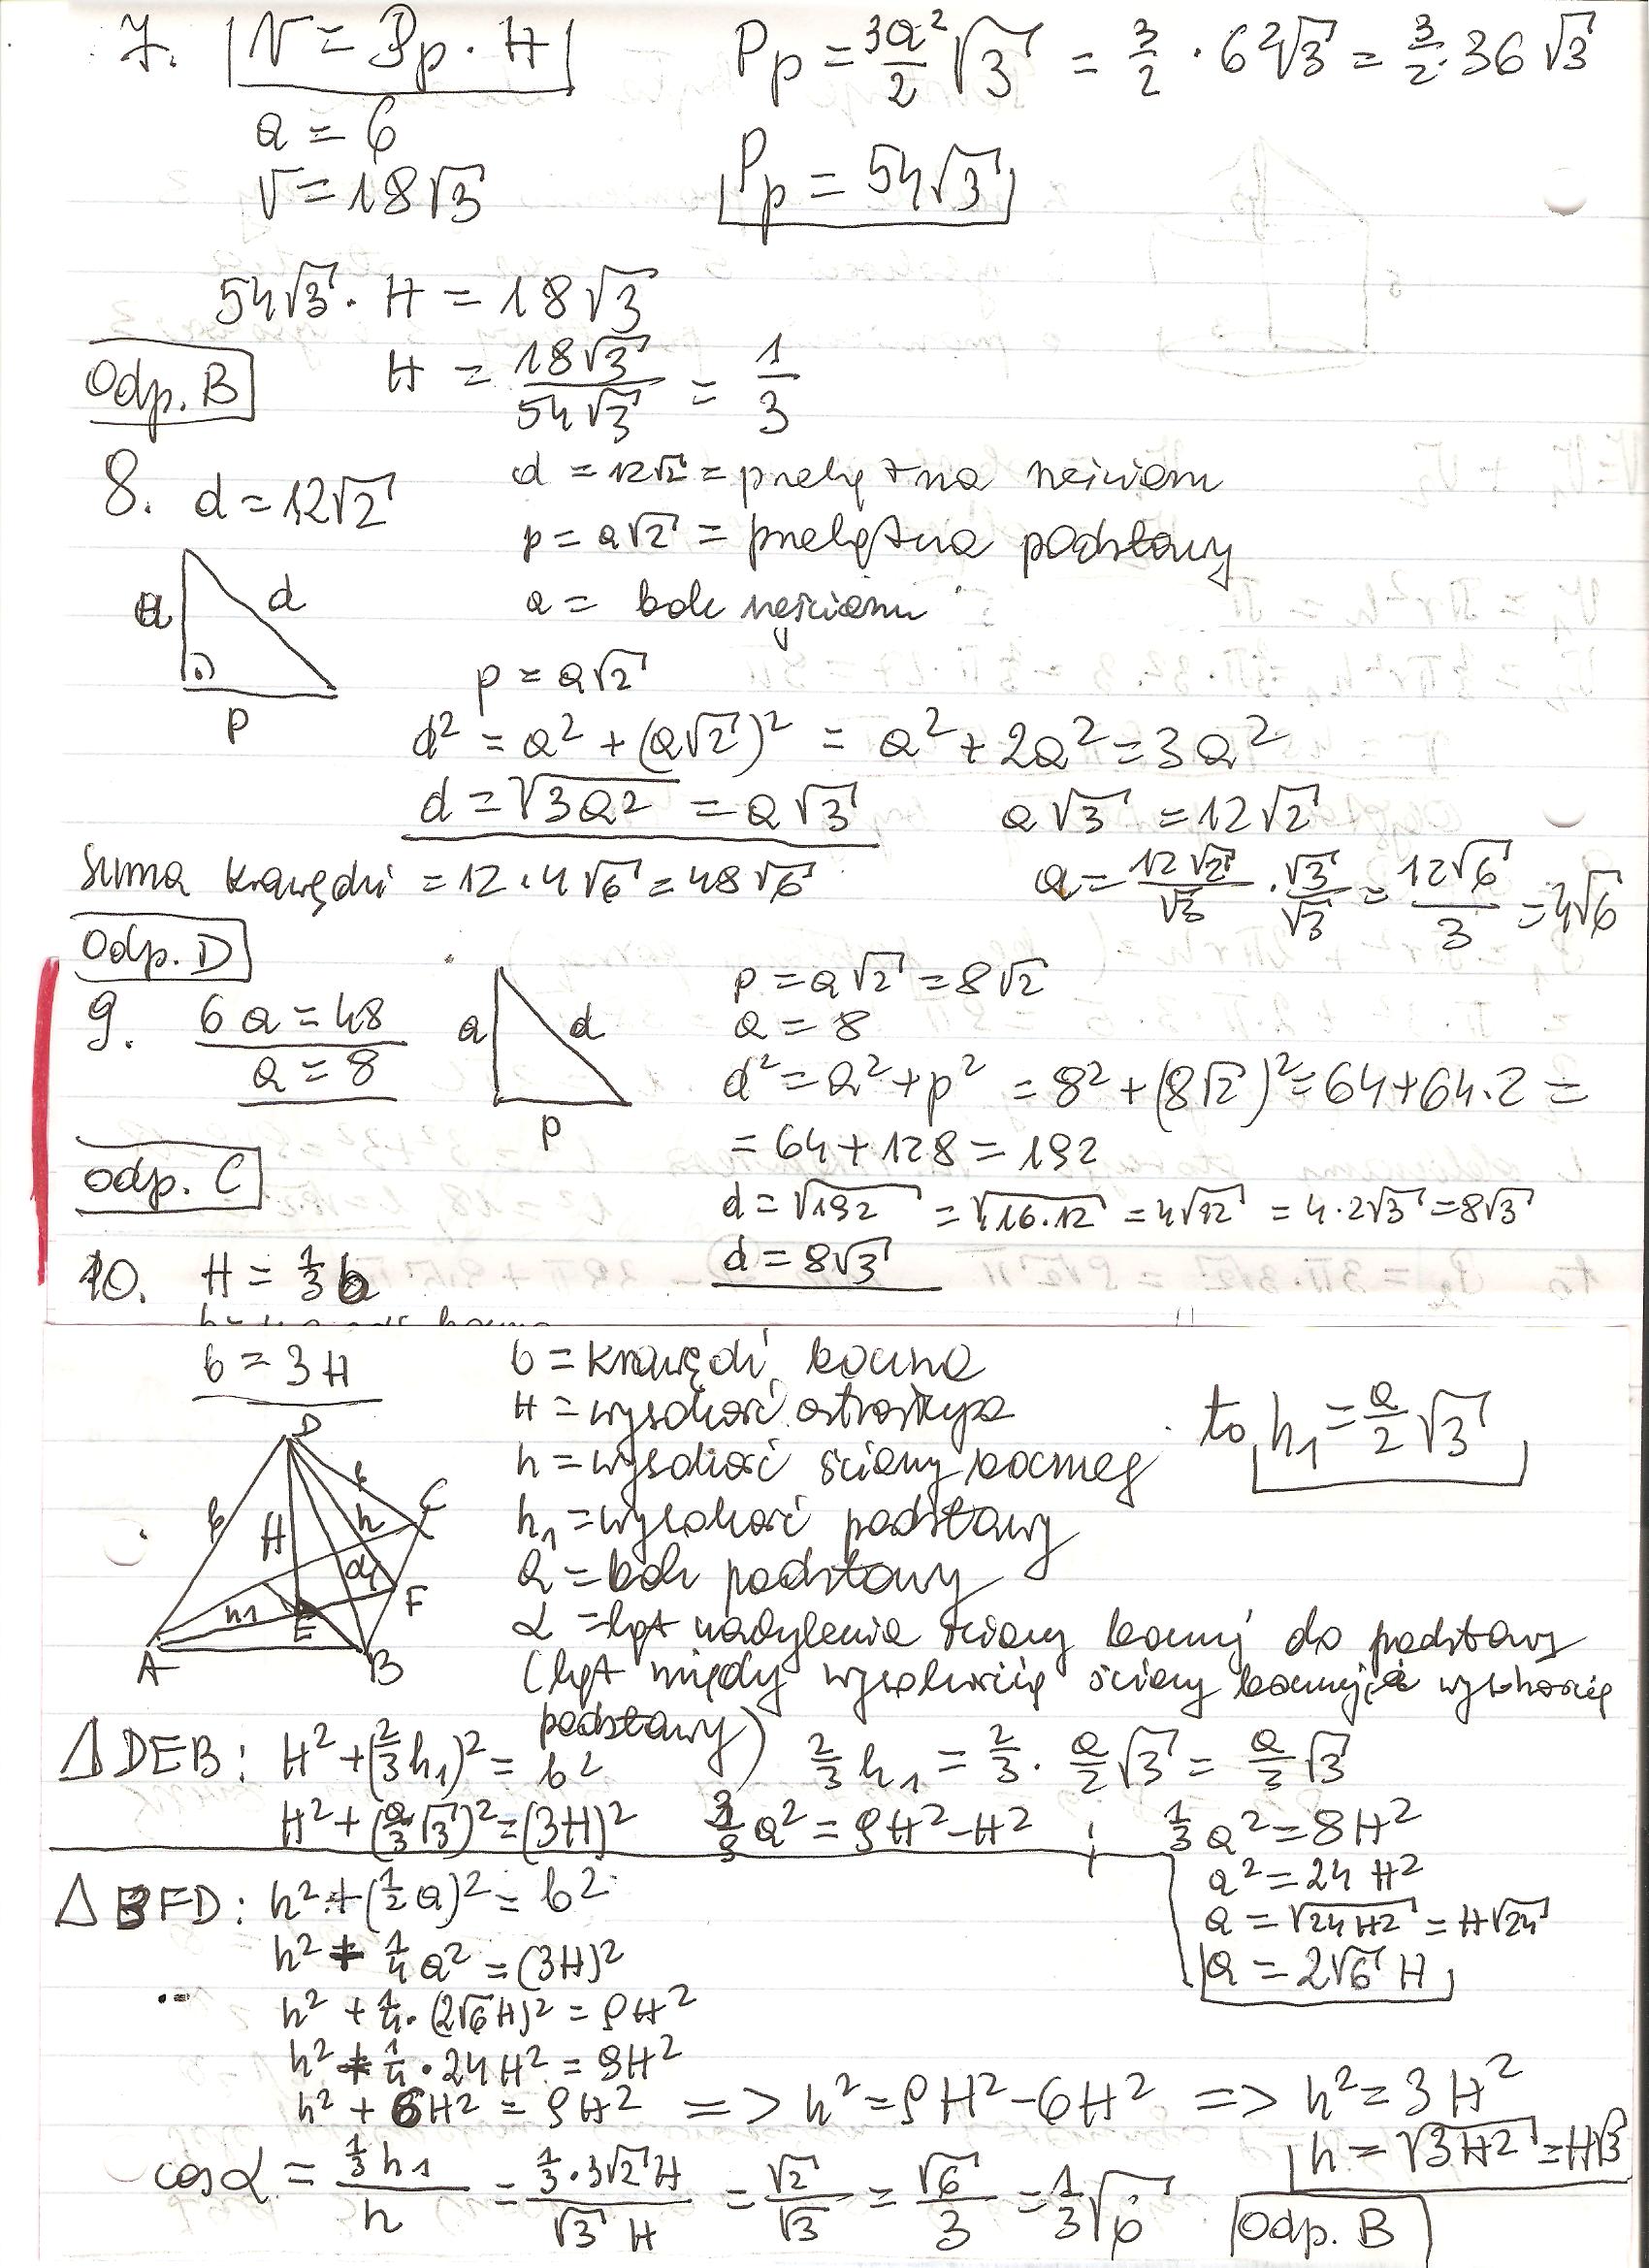 7. V = Pp · H Pp = 3a²/2 √3 = 3/2 · 6²√3 = 3/2 · 36√3
a = 6
V = 18√3 Pp = 54√3
54√3 · H = 18√3
Odp. B H = 18√3/54√3 = 1/3
8. d = 12√2 d = 12√2 = przekątna sześcianu
p = a√2 = przekątna podstawy
H d a = bok sześcianu
p = a√2
p
d² = a² + (a√2)² = a² + 2a² = 3a²
d = √3a² = a√3 a√3 = 12√2
Suma krawędzi = 12 · 4√6 = 48√6 a = 12√2/√3 · √3/√3 = 12√6/3 = 4√6
Odp. D
9. 6a = 48 a d p p = a√2 = 8√2
a = 8 a = 8
d² = a² + p² = 8² + (8√2)² = 64 + 64·2 =
= 64 + 128 = 192
odp. C d = √192 = √16·12 = 4√12 = 4·2√3 = 8√3
d = 8√3
10. H = 1/3 b
b = 3H b = krawędź boczna
H = wysokość ostrosłupa to h₁ = a/2 √3
h = wysokość ściany bocznej
h₁ = wysokość podstawy
a = bok podstawy
α = kąt nachylenia ściany bocznej do podstawy
(kąt między wysokością ściany bocznej a wysokością
podstawy)
D b b C H h α F h1 E A B
Δ DEB: H² + (2/3 h₁)² = b² 2/3 h₁ = 2/3 · a/2 √3 = a/3 √3
H² + (a/3 √3)² = (3H)² 3/9 a² = 9H² - H² ; 1/3 a² = 8H²
a² = 24H²
a = √24H² = H√24
a = 2√6 H
Δ BFD: h² + (1/2 a)² = b²
h² + 1/4 a² = (3H)²
h² + 1/4 · (2√6H)² = 9H²
h² + 1/4 · 24H² = 9H²
h² + 6H² = 9H² => h² = 9H² - 6H² => h² = 3H²
h = √3H² = H√3
cos α = 1/3 h₁/h = 1/3 · 3√2 H/√3 H = √2/√3 = √6/3 = 1/3 √6 Odp. B